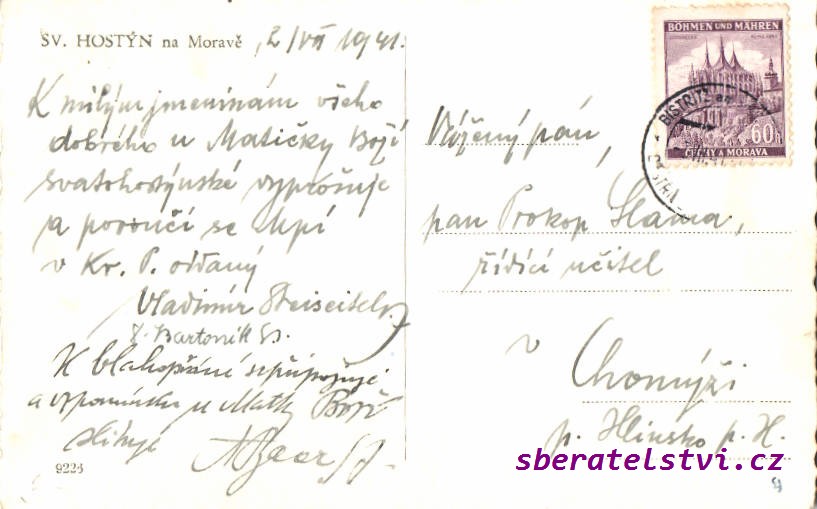 SV. HOSTÝN na Moravě 2/VII 1941.
K milým jmeninám všeho
dobrého u Matičky Boží
svatohostýnské vyprošuje
a poroučí se Mpí
v Kr. P. oddaný
Vladimír
Bartoník SJ.
K blahopřání se připojuje
a vzpomínku u Matky Boží
slibuje
SJ
9223
BÖHMEN UND MÄHREN
60h
ČECHY A MORAVA
BISTRITZ
Vážený pán,
pan Prokop Slama,
řídící učitel
v
Chomýži
p. Hlinsko p. H.
sberatelstvi.cz